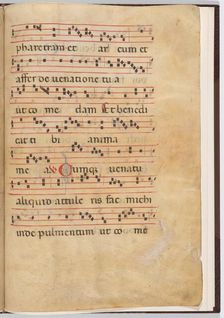 pharetram et ar cum et
affer de venatione tu a
ut co me dam Et benedi
cat ti bi anima
me a Cumque venatu
aliquid attule ris fac michi
inde pulmentum ut co me